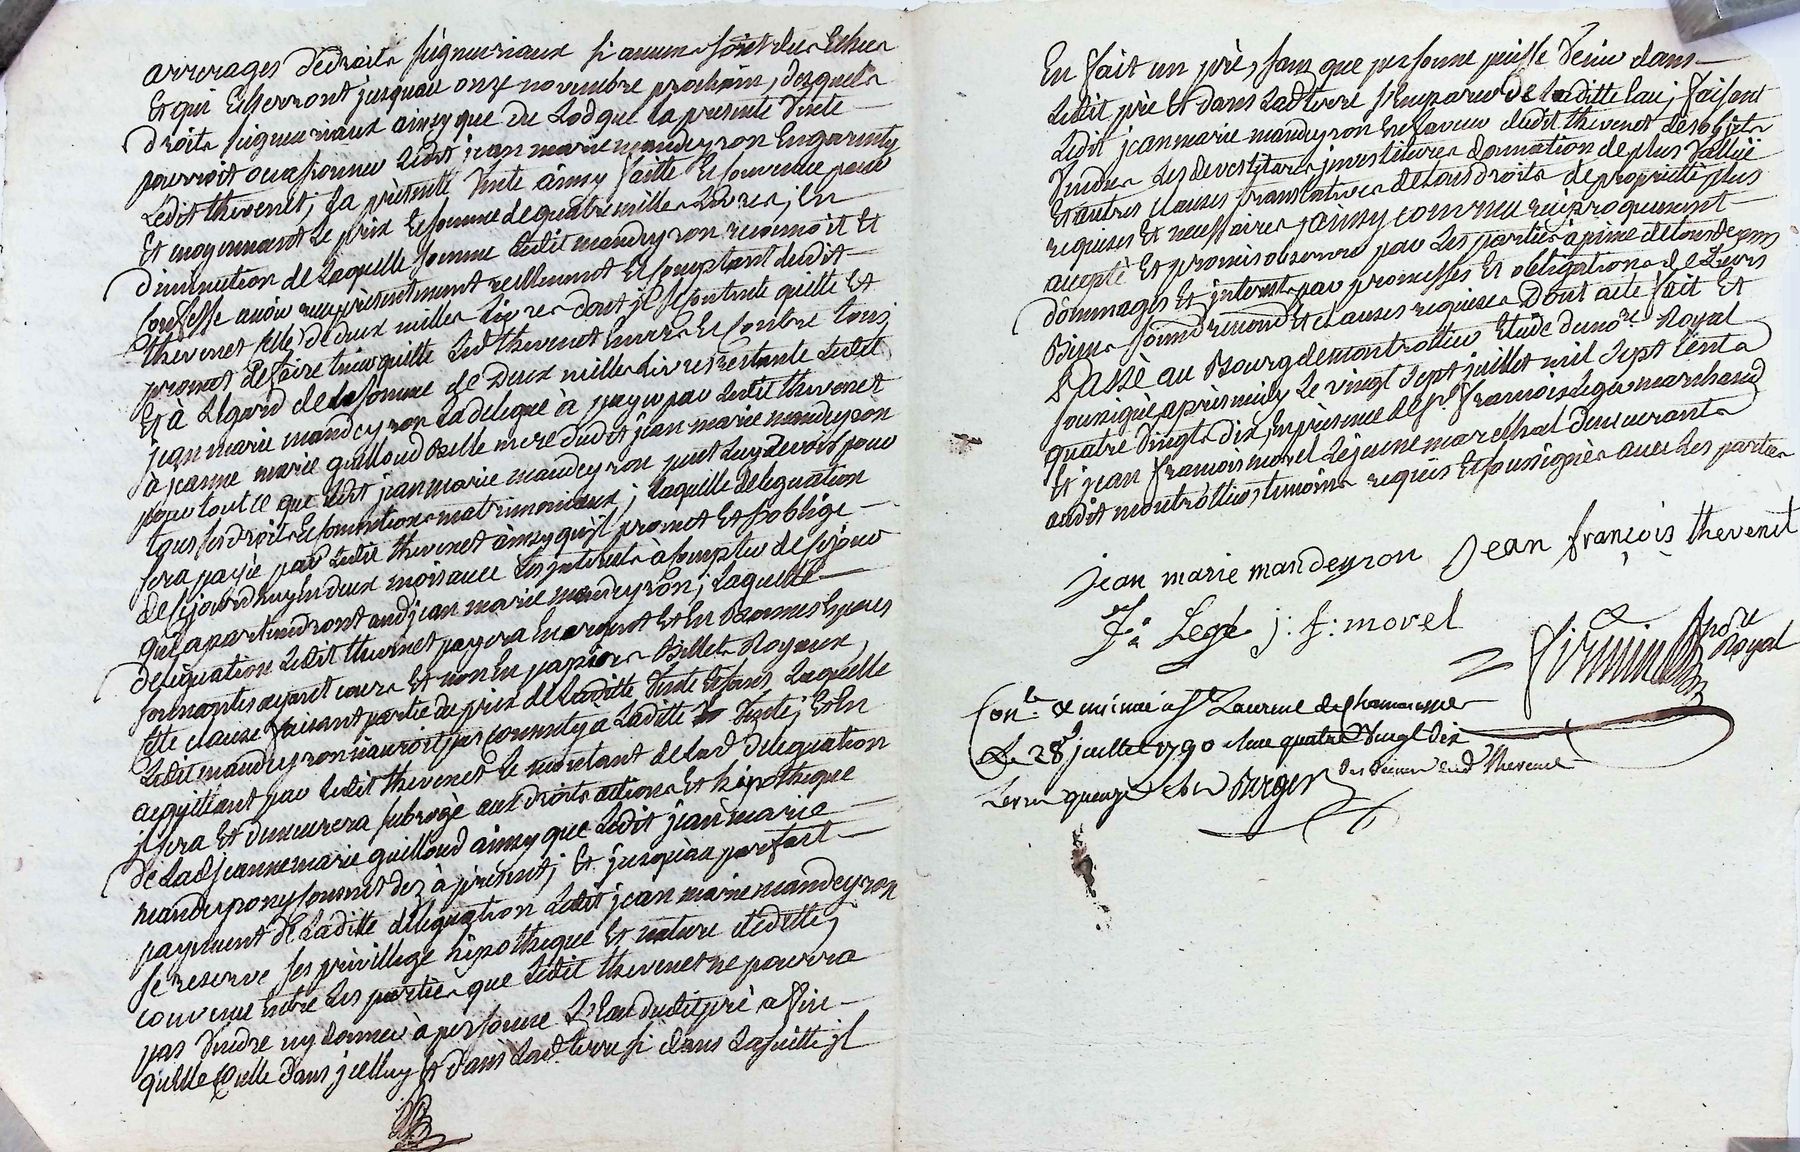 arrerages de droits seigneuriaux si aucuns sont dus Echus
Et qui Echerront jusquau onze novembre prochain, desquels
droits seigneuriaux ainsy que du Lod que la presente vente
pourroit occasionner Ledit jean marie mandeyron En garanty
Ledit thevenet, la presente vente ainsy faitte Et convenue pour
Et moyennant Le prix Et somme de quatre mille Livres, En
diminution de Laquelle somme Ledit mandeyron reconnoit Et
Confesse avoir reçu présentement reellement Et Comptant dudit
thevenet celle de deux mille livres dont il se contente quitte Et
promet de faire tenir quitte Led thevenet Envers Et Contre tous,
Et à Légard de la somme de Deux mille livres restante Ledit
jean marie mandeyron La delegue à payer par Ledit thevenet
à jeanne marie guilloud Belle mere dudit jean marie mandeyron
pour tout ce que Ledit jean marie mandeyron peut Luy devoir pour
tous ses droits Et conventions matrimoniaux; laquelle deleguation
sera payée par Ledit thevenet ainsy qu'il promet Et s'oblige
de cejourdhuy En deux mois avec Les interets à Compter de cejour
qui apartiendront aud jean marie mandeyron; Laquelle
deleguation Ledit thevenet payera En argent Et En Bonnes Especes
sonnantes ayant cours Et non En papiers Billets Royaux,
cette clause faisant partie du prix de Laditte vente Et sans Laquelle
Ledit mandeyron n'auroit pas consenty a Laditte vente; Et En
acquittant par Ledit thevenet Le montant de Lad deleguation
il sera Et demeurera subrogé aux droits actions Et hipotheque
de Lad jeanne marie guilloud ainsy que Ledit jean marie
mandeyron y consent dez à present; Et jusqu'au parfait
payement de Laditte deleguation Ledit jean marie mandeyron
se reserve ses privillege hipotheque Et nature de dette,
convenu entre Les parties que Ledit thevenet ne pourra
pas vendre ny donner à personne L'Eau dudit pré afin
quelle Coulle dans jcelluy Et dans Lad. terre si dans Laquelle jl
En fait un pré, sans que personne puisse venir dans
Ledit pré Et dans Lad terre s'emparer de Laditte Eau; faisant
Ledit jean marie mandeyron En faveur dudit thevenet des objets
vendus Les devestitures jnvestitures donnation de plus vallüe
Et autres clauses translatives de tous droits de propriété plus
requises Et necessaires; ainsy convenu reciproquement
accepté Et promis observer par Les parties a peine de tous depens
dommages Et interets par promesses Et obligations de Leurs
Biens soumis renoncé Et clauses requises Dont acte fait Et
Passé au Bourg de montrottier Etude du no.re Royal
soussigné apres midy Le vingt sept juillet mil sept Cents
quatre vingts dix, En presence de s.r françois Legé marchand
Et jean françois morel Le jeune marechal demeurants
audit montrottier, temoins requis Et soussignés avec Les parties
jean marie mandeyron jean françois thevenet
f. Legé j. f. morel
firmin no.re Royal
Con.lé & insinué a S.t Laurent de Chamousset
Le 28 juillet 1790